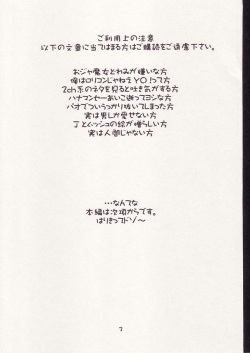 ご利用上の注意
以下の文章に当てはまる方はご購読をご遠慮下さい。
おジャ魔女どれみが嫌いな方
俺はロリコンじゃねえYO!って方
2ch系のネタを見ると吐き気がする方
ハナマンセーあいこ逝ってヨシな方
バオてついうっかり抜いてしまった方
実は男しか愛せない方
丁とムッシュの絵が嫌らしい方
実は人間じゃない方
…なんてな
本編は次項からです。
はりきってドゾ〜
3